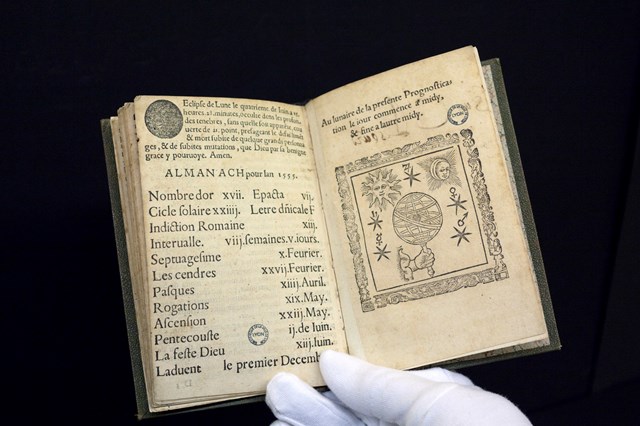 Eclipse de Lune le quatrieme de Iuin, a 11.
heures 28. minutes, occulte dens les profun
des tenebres, sans quelle soy apparente, cou
uerte de point, presageant le defaillimens
& mort subite de quelque grands personna
ges, & de subites mutations, que Dieu par sa benigne
grace y pouruoye. Amen.
ALMANACH pour lan 1555.
Nombre dor xvii. Epacta vij.
Cicle solaire xxiij. Letre dñicale F
Indiction Romaine xiij.
Interualle. viij.semaines.v.iours.
Septuagesime x.Feurier.
Les cendres xxvij.Feurier.
Pasques xiiij.Auril.
Rogations xix.May.
Ascension xxiij.May.
Pentecouste ij.de Iuin.
La feste Dieu xiij.Iuin.
Laduent le premier Decemb
LYON
Au lunaire de la presente Prognostica-
tion le iour commence a midy,
& fine a lautre midy.
LYON